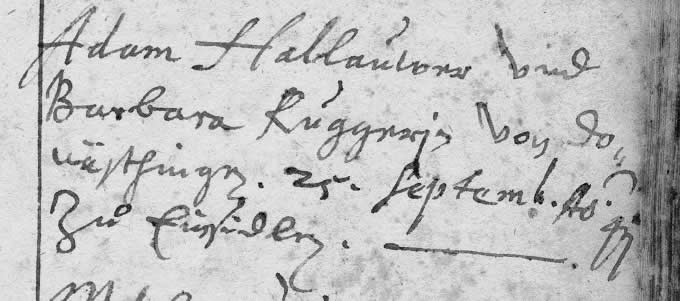 Adam Hallauwer Vnd
Barbara Ruggerin Von Do-
nästhingen. 25. Septemb. Ao.
Zů Einsidlen.